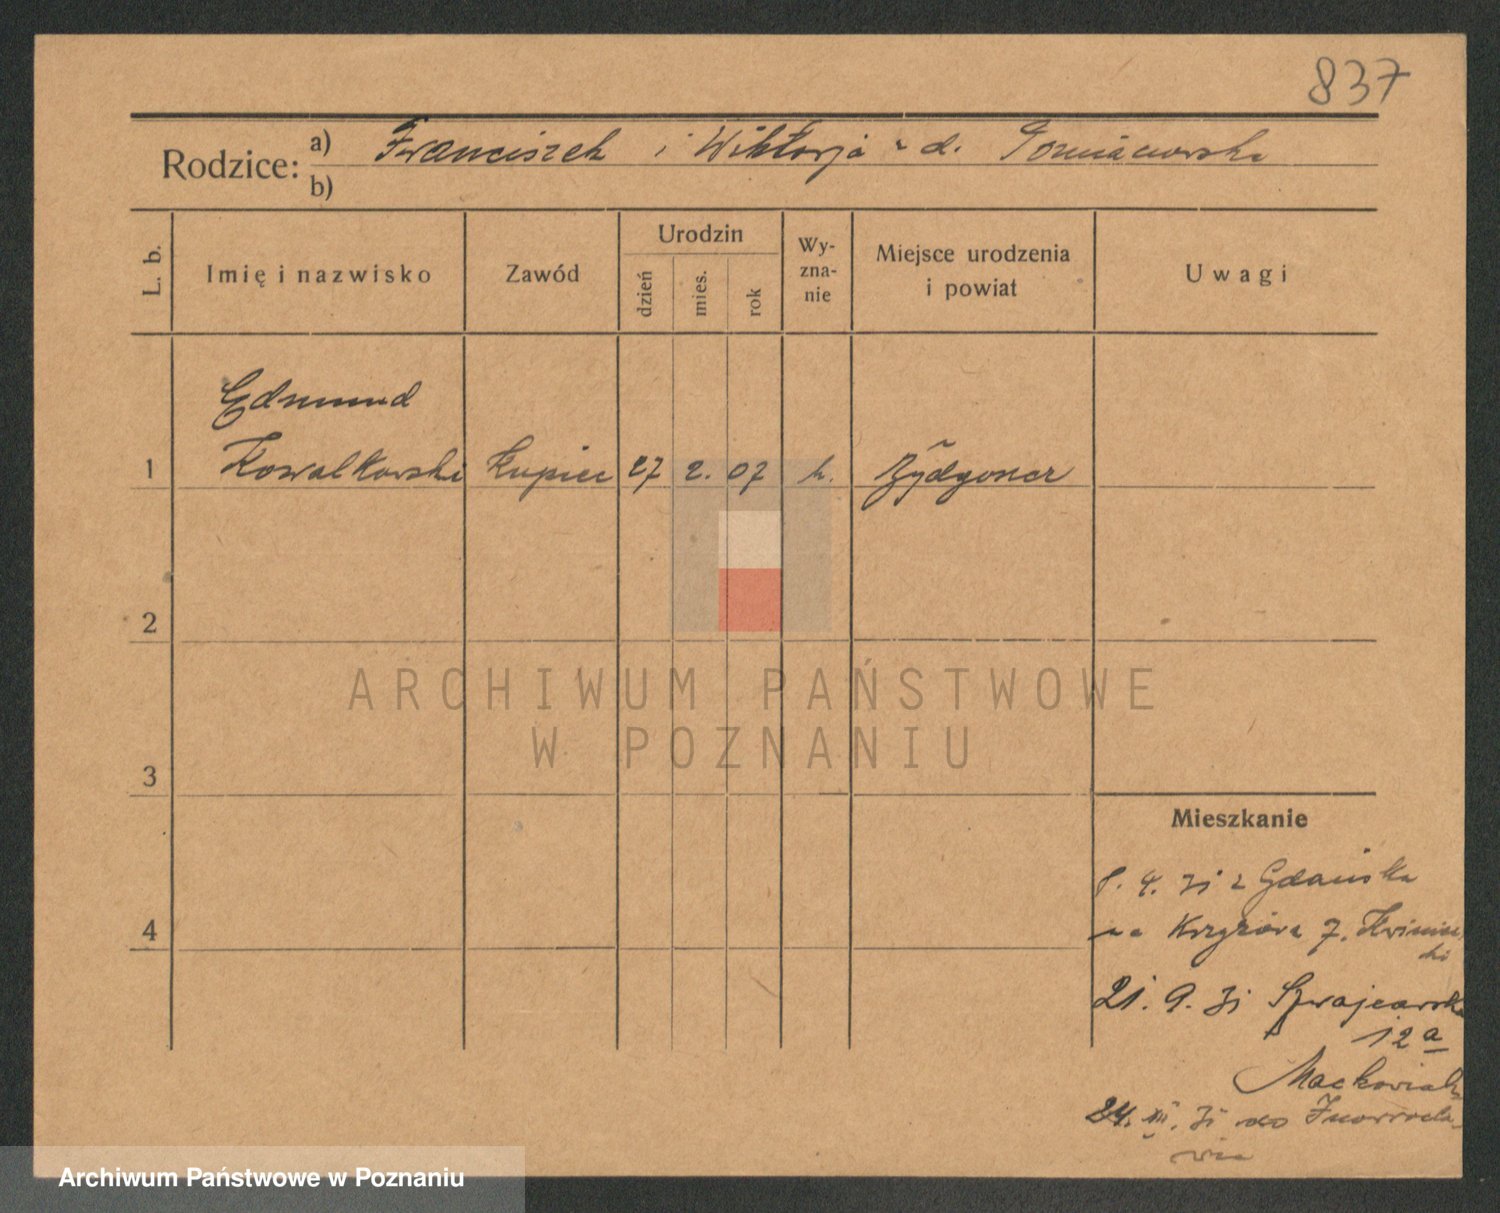 837
Rodzice: a) Franciszek i Wiktorja z d.
b)
L. b.
Imię i nazwisko
Zawód
Urodzin
dzień
mies.
rok
Wy-
zna-
nie
Miejsce urodzenia
i powiat
Uwagi
Edmund
1 Kowalkowski kupiec 27 2. 07 k. Bydgoszcz
2
ARCHIWUM PAŃSTWOWE
W POZNANIU
3
Mieszkanie
4. 31 z Gdańska
4
na Krzyżowa 7.
21. 9. 31 Szwajcarska
12a
Maćkowiak
24. XII. 31 do Inowrocła-
wia
Archiwum Państwowe w Poznaniu